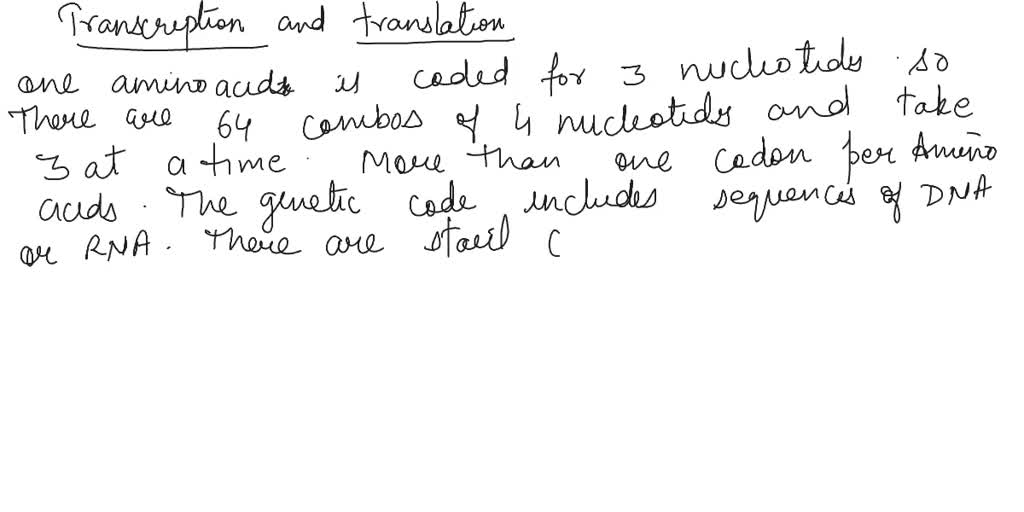 Transcription and translation
one amino acids is coded for 3 nucleotids . so
There are 64 combos of 4 nucleotids and take
3 at a time . More than one codon per Amino
acids . The genetic code includes sequences of DNA
or RNA . There are (